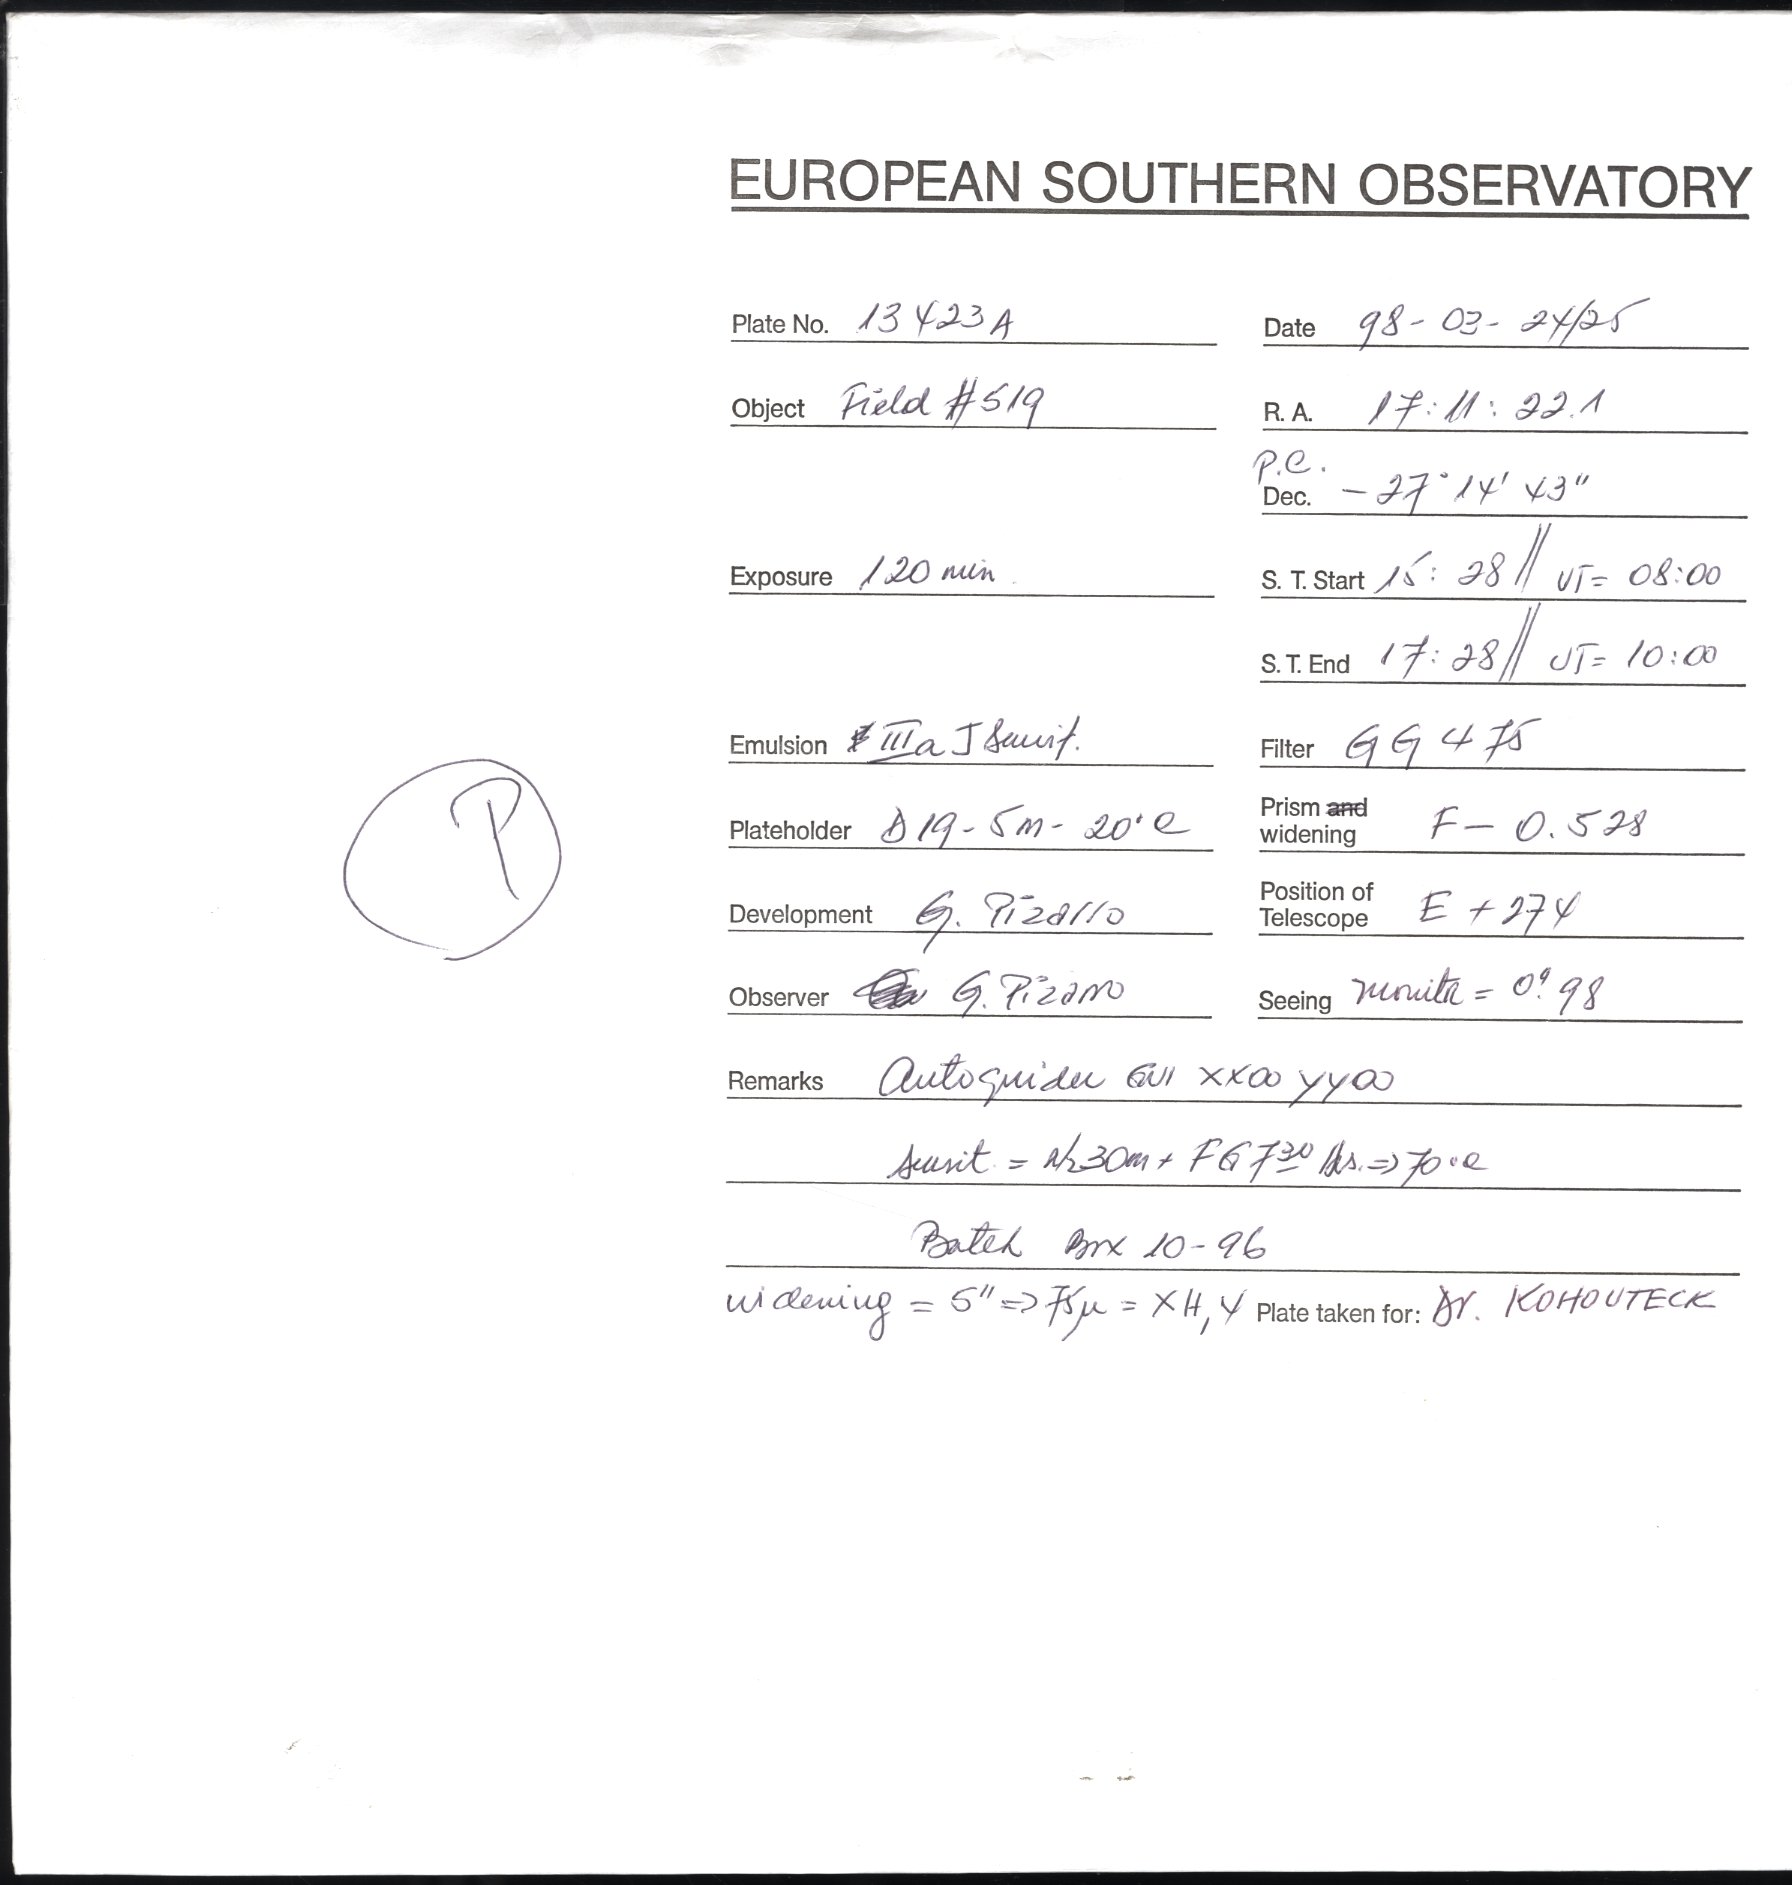 EUROPEAN SOUTHERN OBSERVATORY
Plate No. 13423A Date 98-03-24/25
Object Field #519 R. A. 17:11:22.1
P.C.
Dec. -27°14'43"
Exposure 120 min. S. T. Start 15:28 // UT= 08:00
S. T. End 17:28 // UT= 10:00
Emulsion IIIa J Sensit. Filter GG475
Plateholder D19-5m-20°C Prism and widening F-0.528
Development G. Pizarro Position of Telescope E +274
P
Observer G. Pizarro Seeing Monitor = 0".98
Remarks Autoguider XX00 YY00
Sensit. = N2 30m + FG 7 30 hrs. => 70°C
Batch Box 10-96
widening = 5" => 75µ = XH,4 Plate taken for: Dr. KOHOUTECK